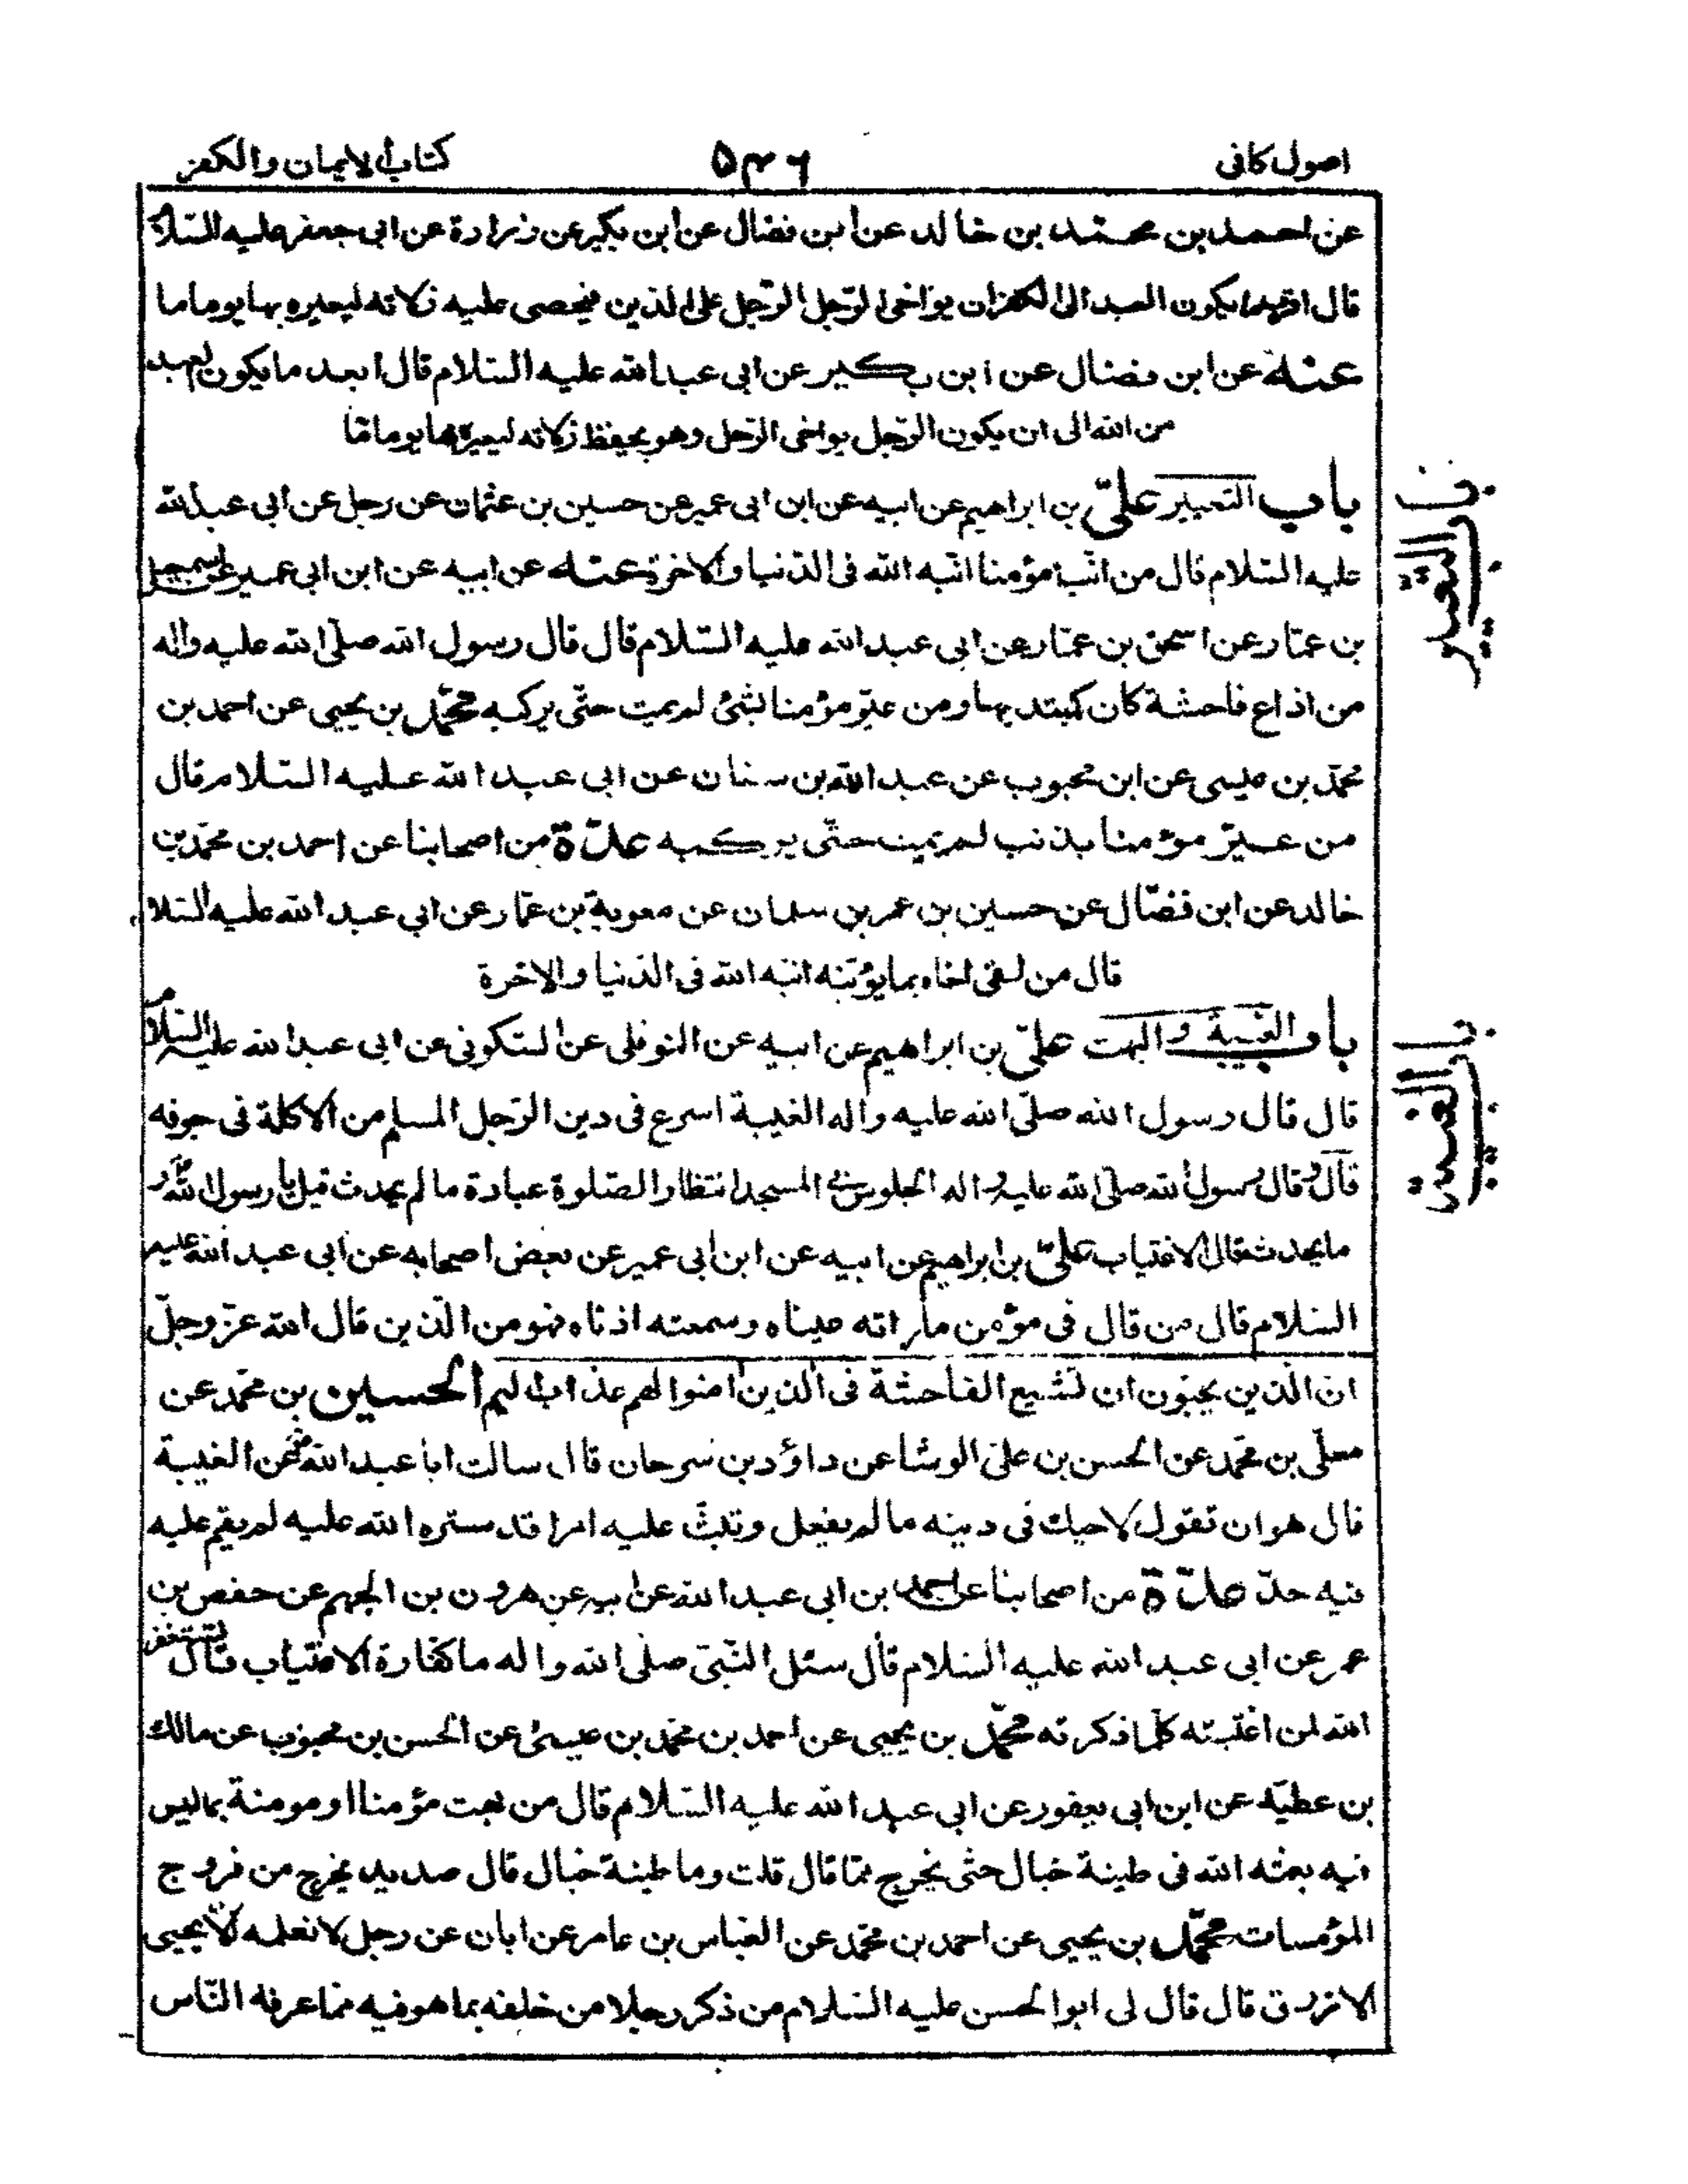 اصول كافى
۵۴۶
كتاب الايمان والكفر
عن احمد بن محمّد بن خالد عن ابن فضال عن ابن بكير عن زرارة عن ابى جعفر عليه السّلام
قال اقرب ما يكون العبد الى الكفر ان يواخى الرّجل الرّجل على الدّين فيحصى عليه زلاته ليعيره بها يوما ما
عنه عن ابن فضال عن ابن بكير عن ابى عبد الله عليه السّلام قال ابعد ما يكون العبد
من الله الى ان يكون الرّجل يواخى الرّجل وهو يحفظ زلاته ليعيره بها يوما مّا
باب التعيير علىّ بن ابراهيم عن ابيه عن ابن ابى عمير عن حسين بن عثمان عن رجل عن ابى عبد الله
عليه السّلام قال من انّب مؤمنا انّبه الله فى الدّنيا والاخرة عنه عن ابيه عن ابن ابى عمير عن اسمعيل
بن عمّار عن اسحق بن عمّار عن ابى عبد الله عليه السّلام قال قال رسول الله صلّى الله عليه واله
من اذاع فاحشة كان كمبتديها ومن عيّر مؤمنا بشئ لم يمت حتّى يركبه محمّد بن يحيى عن احمد بن
محمّد بن عيسى عن ابن محبوب عن عبد الله بن سنان عن ابى عبد الله عليه السّلام قال
من عيّر مؤمنا بذنب لم يمت حتّى يركبه عدّة من اصحابنا عن احمد بن محمّد بن
خالد عن ابن فضّال عن حسين بن عمر بن سلمان عن معوية بن عمّار عن ابى عبد الله عليه السّلام
قال من لقى اخاه بما يؤنّبه انّبه الله فى الدّنيا والاخرة
باب الغيبة والبهت علىّ بن ابراهيم عن ابيه عن النوفلى عن السّكونى عن ابى عبد الله عليه السّلام
قال قال رسول الله صلّى الله عليه واله الغيبة اسرع فى دين الرّجل المسلم من الاكلة فى جوفه
قال وقال رسول الله صلّى الله عليه واله الجلوس فى المسجد انتظار الصّلوة عبادة ما لم يحدث قيل يا رسول الله و
ما يحدث فقال الاغتياب علىّ بن ابراهيم عن ابيه عن ابن ابى عمير عن بعض اصحابه عن ابى عبد الله عليه
السّلام قال من قال فى مؤمن ما راته عيناه وسمعته اذناه فهو من الّذين قال الله عزّ وجلّ
انّ الّذين يحبّون ان تشيع الفاحشة فى الّذين امنوا لهم عذاب اليم الحسين بن محمّد عن
معلّى بن محمّد عن الحسن بن علىّ الوشّا عن داؤد بن سرحان قال سالت ابا عبد الله عن الغيبة
قال هو ان تقول لاخيك فى دينه ما لم يفعل وتبثّ عليه امرا قد ستره الله عليه لم يقم عليه
فيه حدّ عدّة من اصحابنا عن احمد بن ابى عبد الله عن ابيه عن هرون بن الجهم عن حفص بن
عمر عن ابى عبد الله عليه السّلام قال سئل النّبىّ صلّى الله واله ما كفّارة الاغتياب قال تستغفر
الله لمن اغتبته كلّما ذكرته محمّد بن يحيى عن احمد بن محمّد بن عيسى عن الحسن بن محبوب عن مالك
بن عطيّة عن ابن ابى يعفور عن ابى عبد الله عليه السّلام قال من بهت مؤمنا او مومنة بما ليس
فيه بعثه الله فى طينة خبال حتّى يخرج ممّا قال قلت وما طينة خبال قال صديد يخرج من فروج
المؤمسات محمّد بن يحيى عن احمد بن محمّد عن العبّاس بن عامر عن ابان عن رجل لا نعلمه الّا يحيى
الازرق قال قال لى ابو الحسن عليه السّلام من ذكر رجلا من خلفه بما هو فيه ممّا عرفه النّاس
باب التعيير
باب الغيبة